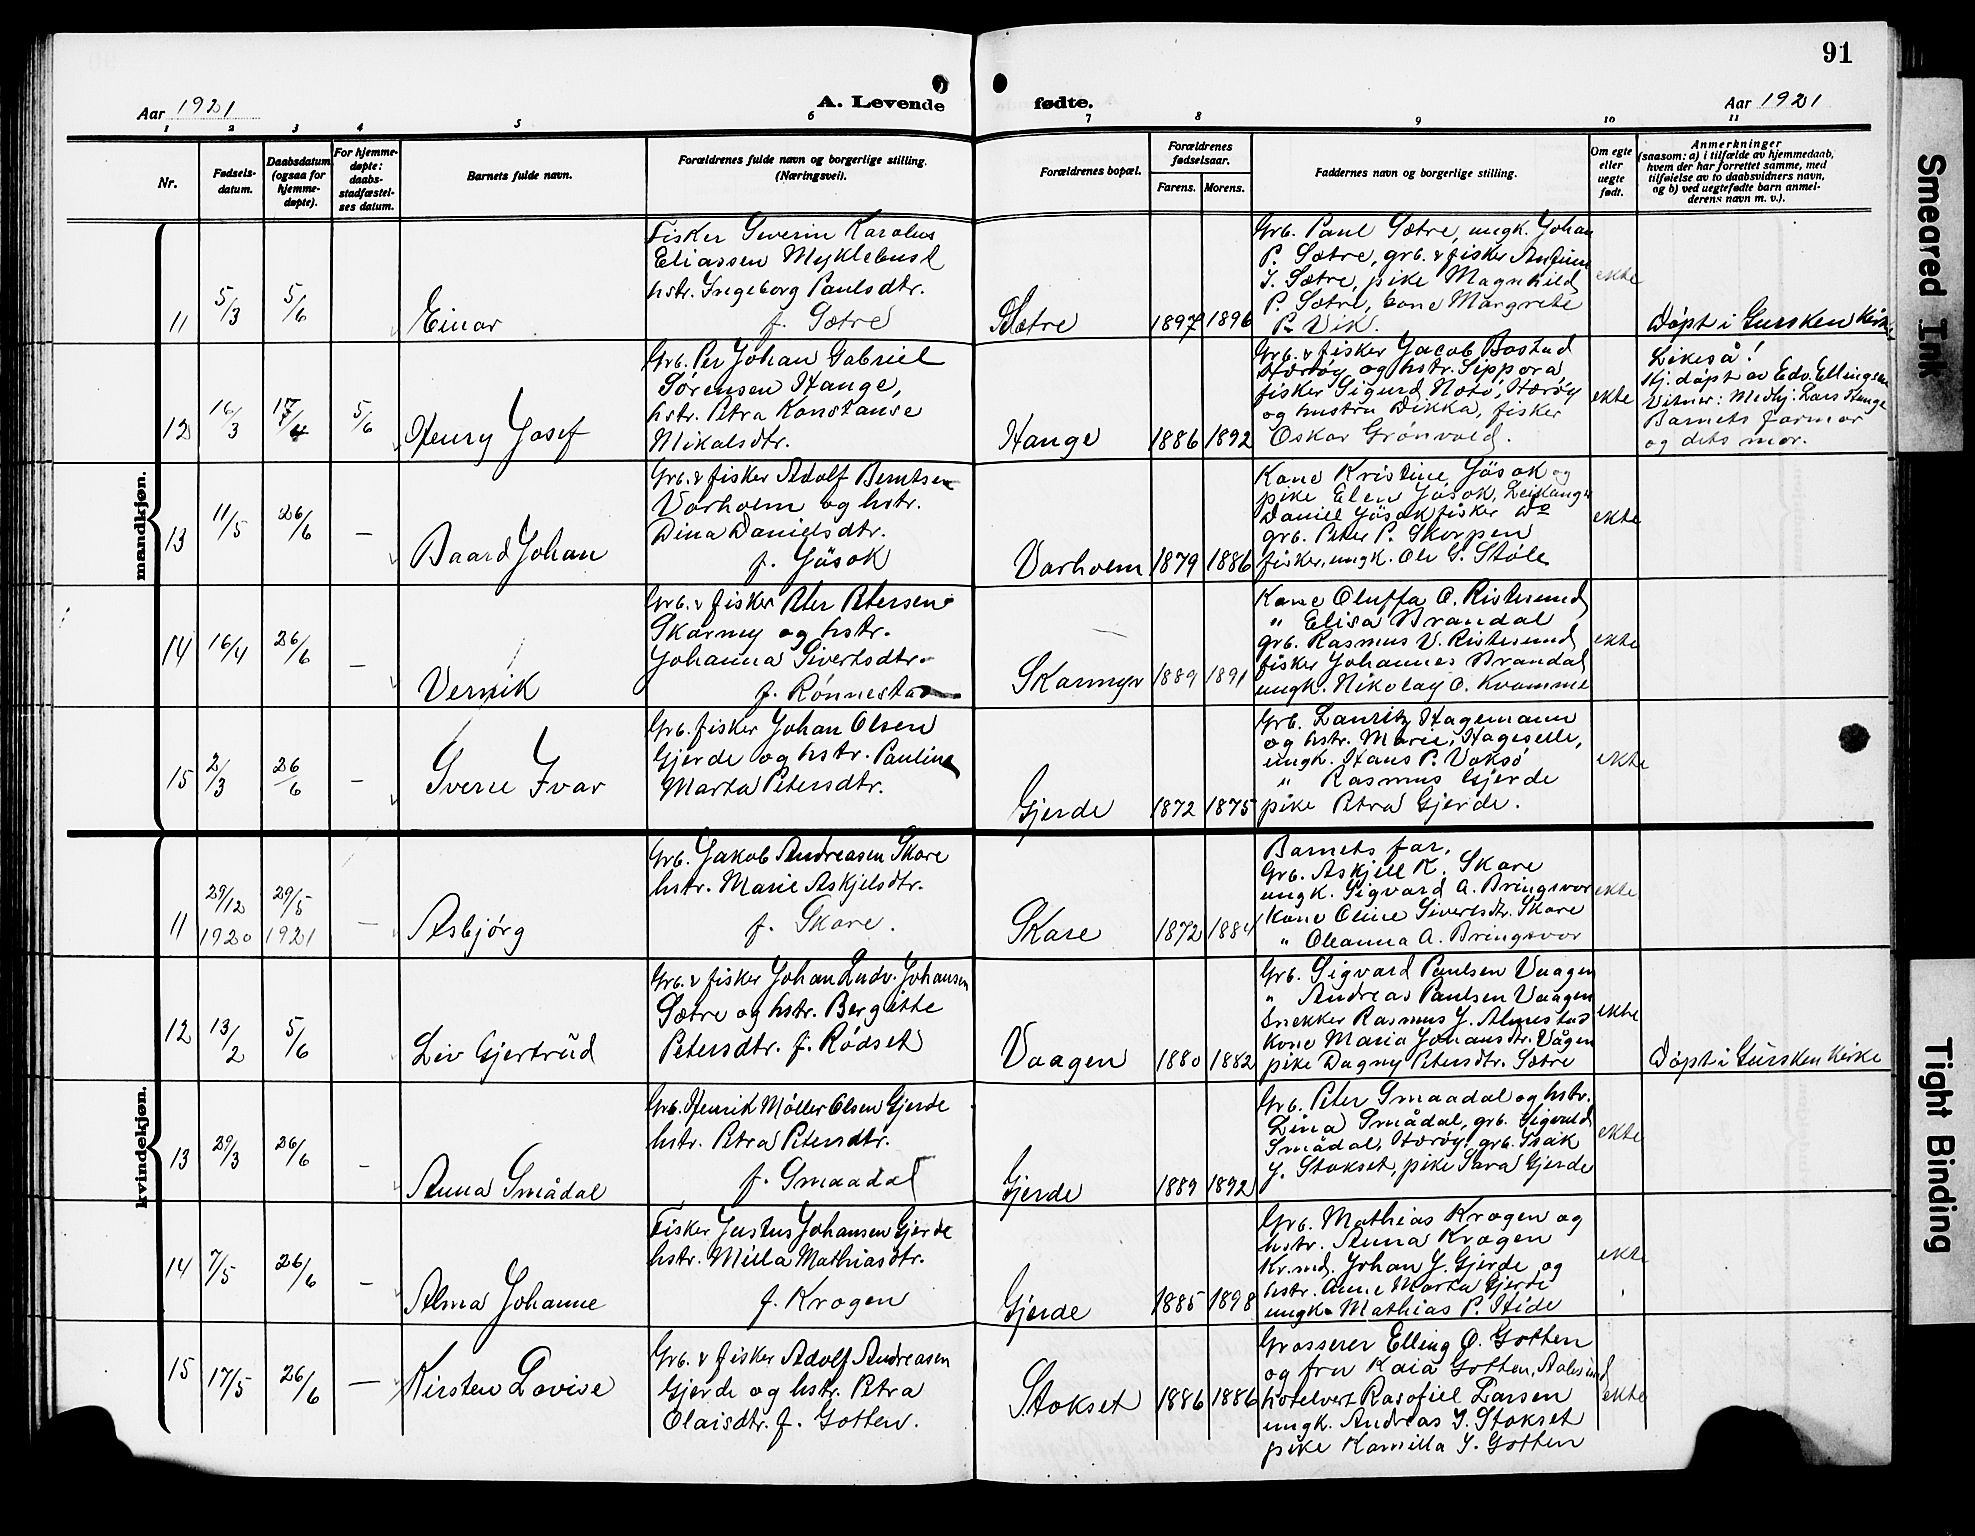 91
Aar 1921
A. Levende
fødte.
Aar 1921
1 2 3 4 5 6 7 8 9 10 11
Nr.
Fødsels-
datum.
Daabsdatum
(ogsaa for
hjemme-
døpte).
For hjemme-
døpte:
daabs-
stadfæstel-
ses datum.
Barnets fulde navn.
Forældrenes fulde navn og borgerlige stilling.
(Næringsvei).
Forældrenes bopæl.
Forældrenes
fødselsaar.
Farens. Morens.
Faddernes navn og borgerlige stilling.
Om egte
eller
uegte
født.
Anmerkninger
(saasom: a) i tilfælde av hjemmedaab,
hvem der har forrettet samme, med
tilføielse av to daabsvidners navn,
og b) ved uegtefødte barn anmel-
derens navn m. v.).
mandkjøn.
11
5/3
5/6
Einar
Fisker Severin Karolus
Eliassen Myklebust
hstr. Ingeborg Paulsdtr.
f. Sætre
Sætre
1897
1896
Grb. Paul Sætre, ungk. Johan
P. Sætre, grb. & fisker
J. Sætre, pike Magnhild
P. Sætre, kone Margrete
P. Vik.
ekte
Döpt i Gursken Kirke
12
16/3
17/4
5/6
Henry Josef
Grb. Per Johan Gabriel
Sørensen Hauge,
hstr. Petra Konstanse
Mikalsdtr.
Hauge
1886
1892
Grb. & fisker Jacob Bostad
Herøy og hstr. Sippora
fisker Sigurd Notö, Herøy
og hustru Dikka, fisker
Oskar Grönvold.
ekte
Likeså!
Hj. döpt av Edv. Ellingsen
Vitner: Medhj. Lars Hauge
Barnets farmor
og dets mor.
13
11/5
26/6
—
Baard Johan
Grb. & fisker Adolf Berntsen
Varholm og hstr.
Dina Danielsdtr.
f. Jösok
Varholm
1879
1886
Kone Kristine Jösok og
pike Elen Jösok, Leikanger
Daniel Jösok fisker do
grb. Peter P. Skorpen
fisker, ungk. Ole G. Støle
ekte
14
16/4
26/6
—
Vernik
Grb. & fisker Peter Petersen
Skarmyr og hstr.
Johanna Sivertsdtr.
f. Rønnestad
Skarmyr
1889
1891
Kone Oluffa O. Ristesund
" Elisa Brandal
grb. Rasmus V. Ristesund
fisker Johannes Brandal
ungk. Nikolay O. Kvamme
ekte
15
2/3
26/6
—
Sverre Ivar
Grb. fisker Johan Olsen
Gjerde og hstr. Pauline
Marta Petersdtr.
Gjerde
1872
1875
Grb. Lauritz Hagemann
og hstr. Marie, Hageselle,
ungk. Hans P. Voksö
" Rasmus Gjerde
pike Petra Gjerde.
ekte
kvindekjøn.
11
29/12
1920
29/5
1921
—
Asbjørg
Grb. Jakob Andreasen Skare
hstr. Marie Askjelsdtr.
f. Skare.
Skare
1872
1884
Barnets far,
Grb. Askjell K. Skare
ungk. Sigvard A. Bringsvor
Kone Oline Sivertsdtr. Skare
" Oleanna A. Bringsvor
ekte
12
13/2
5/6
Liv Gjertrud
Grb. & fisker Johan Ludv. Johansen
Sætre og hstr. Bergitte
Petersdtr. f. Rödset
Vaagen
1880
1882
Grb. Sigvard Paulsen Vaagen
" Andreas Paulsen Vaagen
Snekker Rasmus J. Almestad
Kone Maria Johansdtr. Vågen
pike Dagny Petersdtr. Sætre
ekte
Döpt i Gursken Kirke
13
29/3
26/6
—
Anna Smådal
Grb. Henrik Möller Olsen Gjerde
hstr. Petra Petersdtr.
f. Smaadal
Gjerde
1889
1892
Grb. Peter Smaadal og hstr.
Lina Smådal, grb. Sigvald
Smådal, Herøy, grb. Isak
J. Stokset, pike Sara Gjerde
ekte
14
7/5
26/6
—
Alma Johanne
Fisker Justus Johansen Gjerde
hstr. Milla Mathiasdtr.
f. Krogen
Gjerde
1885
1898
Grb. Mathias Krogen og
hstr. Anna Krogen
Kr.md. Johan J. Gjerde og
hstr. Anne Marta Gjerde
ungk. Mathias P. Hide
ekte
15
17/5
26/6
—
Kirsten Lovise
Grb. & fisker Adolf Andreasen
Gjerde og hstr. Petra
Olaisdtr. f. Gotten.
Stokset
1886
1886
Grosserer Elling O. Gotten
og fru Kaia Gotten, Aalesund
hotelvert Rasofiel Larsen
ungk. Andreas I. Stokset
pike Kamilla J. Gotten
ekte
Smeared Ink
Tight Binding